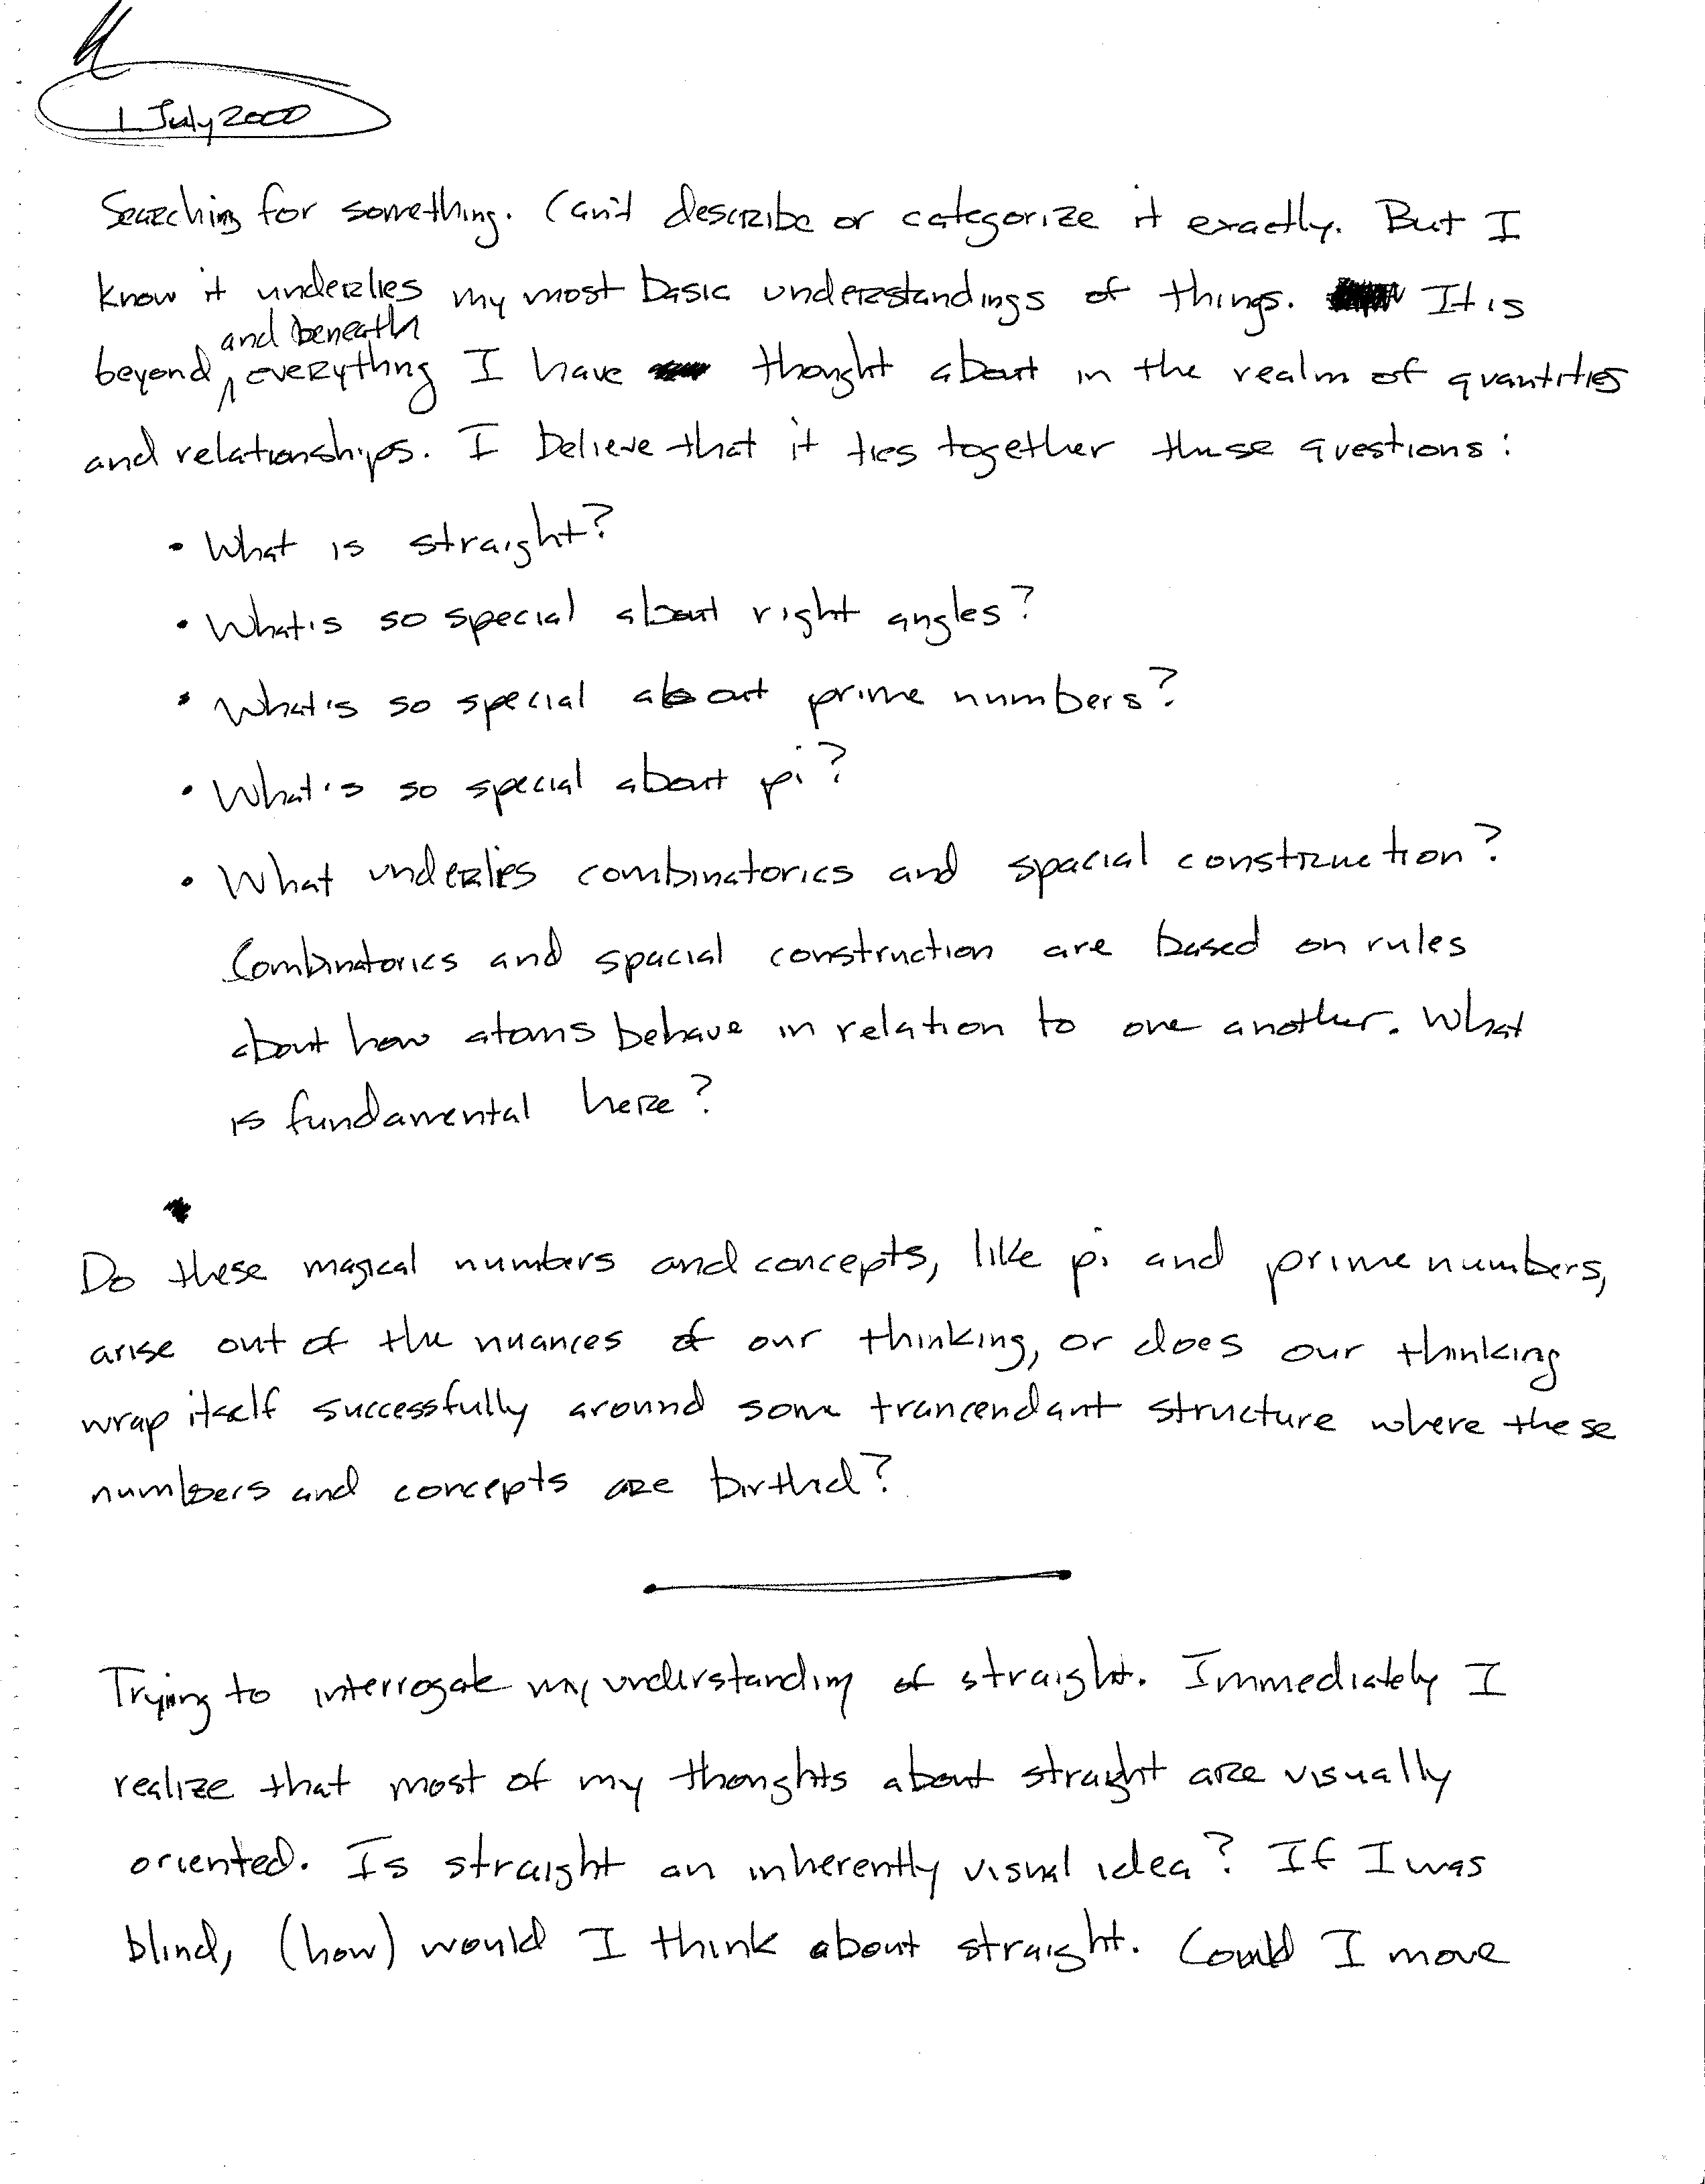 1 July 2000
Searching for something. Can't describe or categorize it exactly. But I
know it underlies my most basic understandings of things. It is
and beneath
beyond ^ everything I have thought about in the realm of quantities
and relationships. I believe that it ties together these questions:
• What is straight?
• What's so special about right angles?
• What's so special about prime numbers?
• What's so special about pi?
• What underlies combinatorics and spacial construction?
Combinatorics and spacial construction are based on rules
about how atoms behave in relation to one another. What
is fundamental here?
Do these magical numbers and concepts, like pi and prime numbers,
arise out of the nuances of our thinking, or does our thinking
wrap itself successfully around some trancendant structure where these
numbers and concepts are birthed?
Trying to interrogate my understanding of straight. Immediately I
realize that most of my thoughts about straight are visually
oriented. Is straight an inherently visual idea? If I was
blind, (how) would I think about straight. Could I move